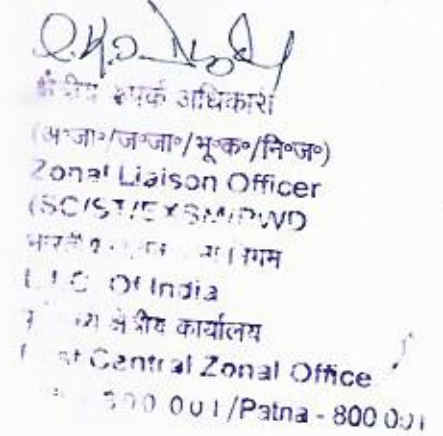 संपर्क अधिकारी
(अ॰जा॰/ज॰जा॰/भू॰क॰/नि॰ज॰)
Zonal Liaison Officer
(SC/ST/EXSM/PWD
L.I.C. Of India
क्षेत्रीय कार्यालय
Central Zonal Office
800 001/Patna - 800 001